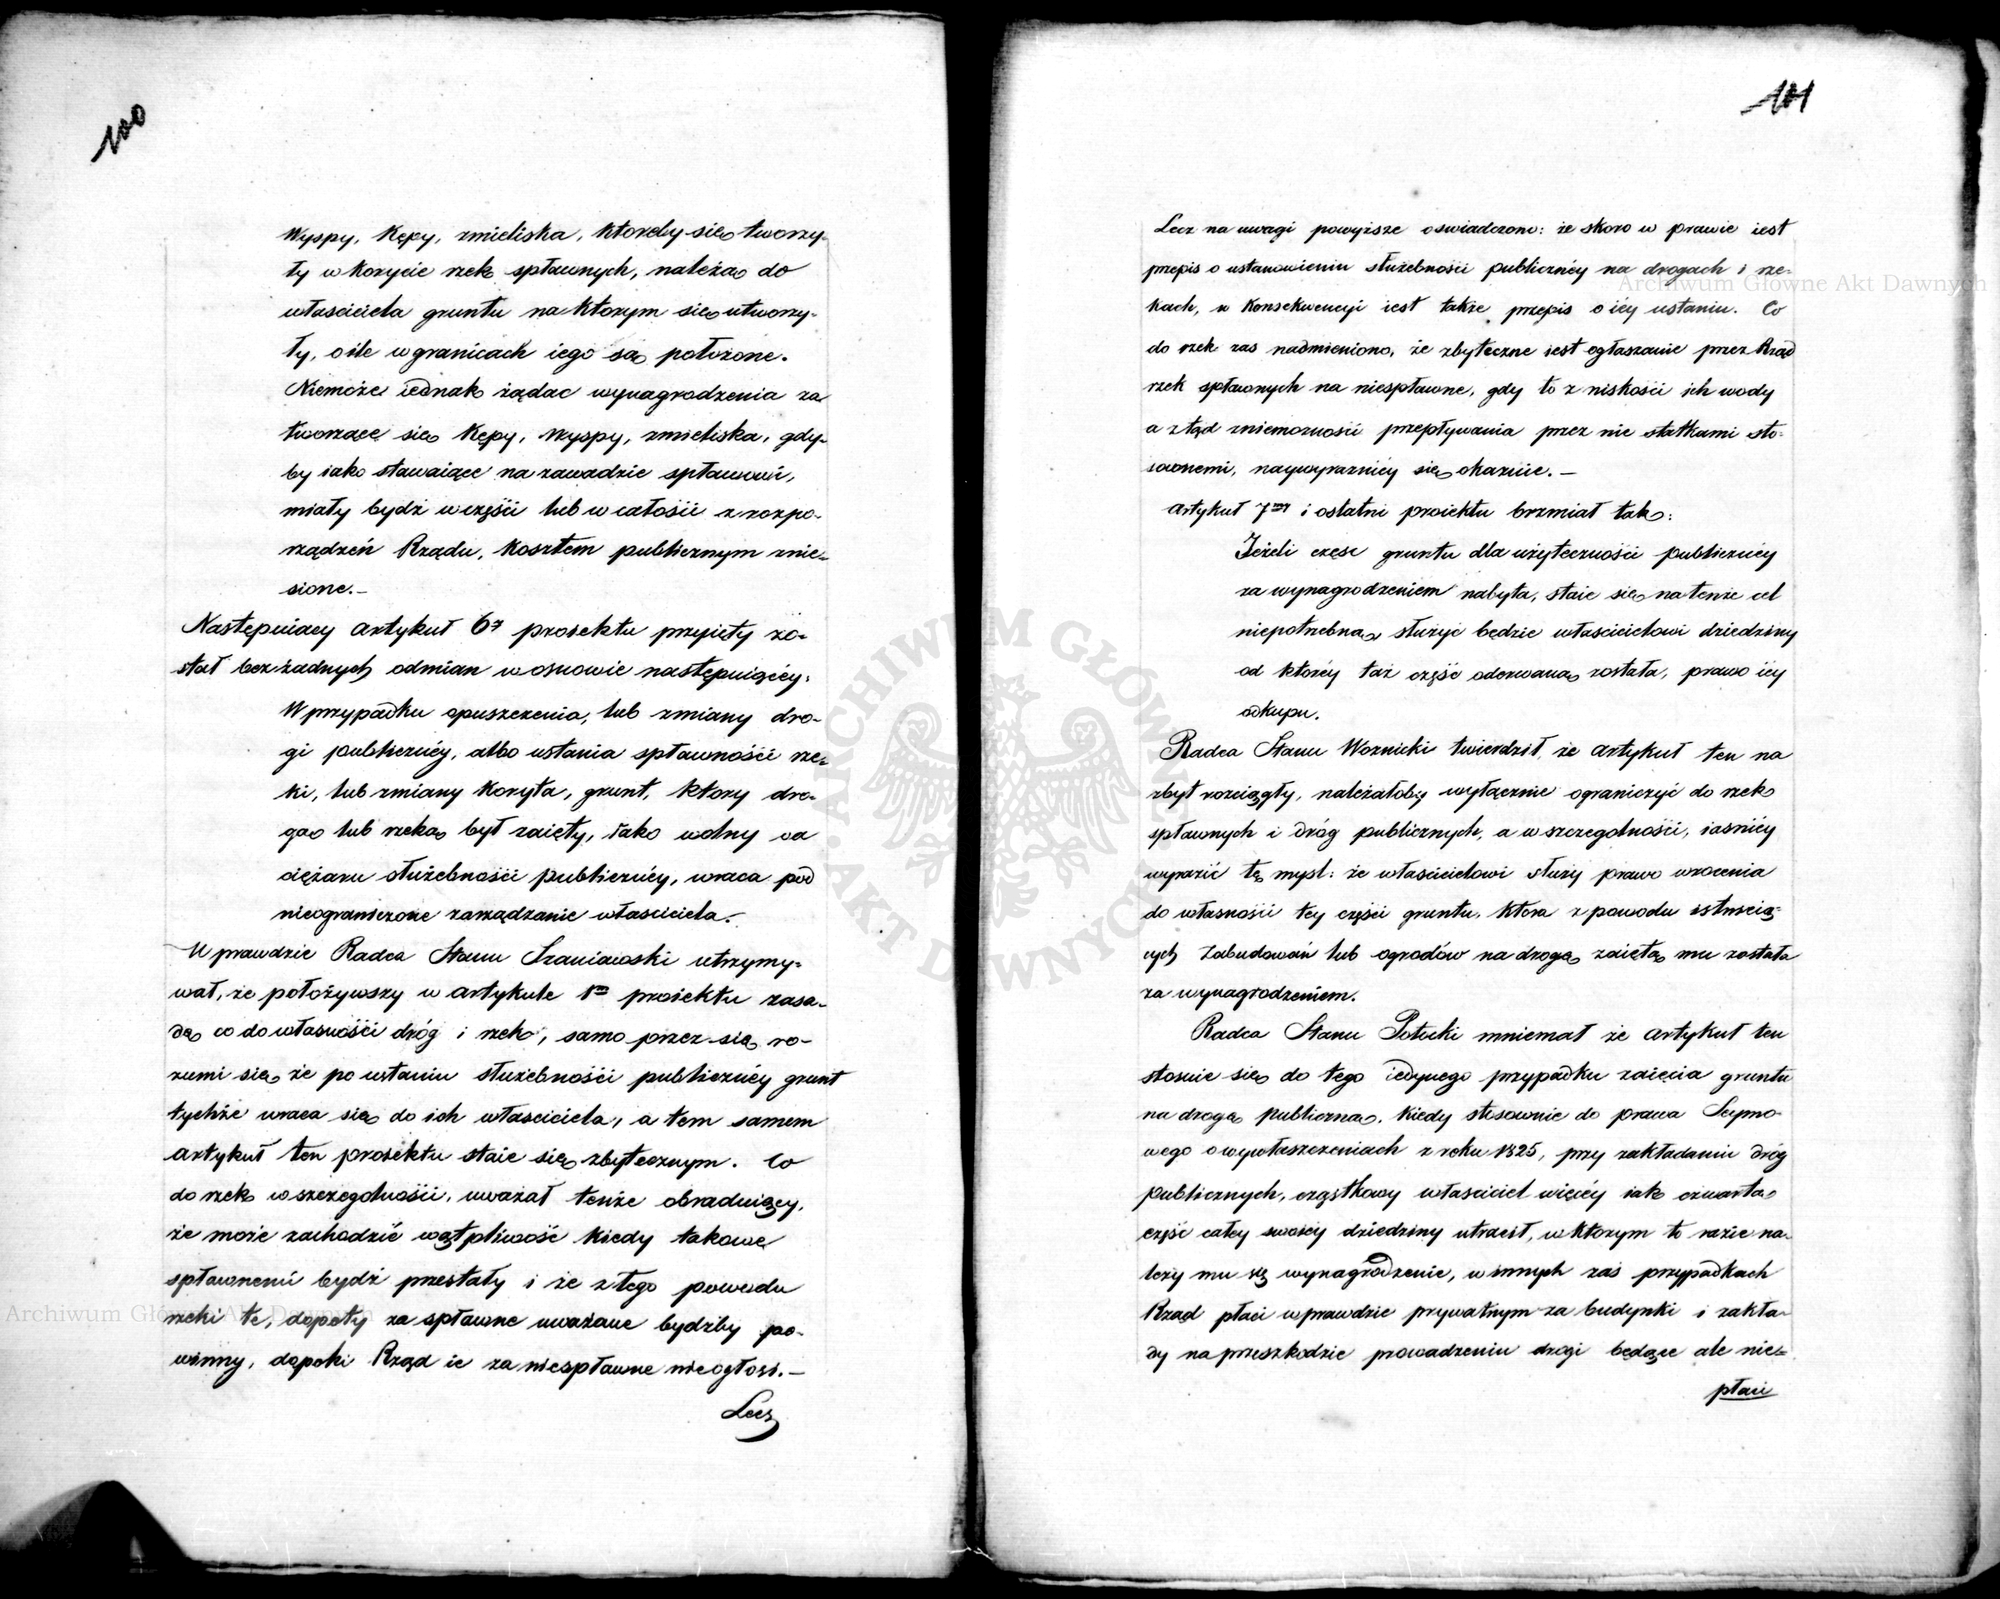 100
Wyspy, Kępy, zmieliska, ktoreby się tworzy-
ły w korycie rzek spławnych, należą do
właściciela gruntu na ktorym się utworzy-
ły, o ile w granicach iego są położone.
Niemoże iednak żądac wynagrodzenia za
tworzące się Kępy, Wyspy, zmieliska, gdy-
by iako stawaiące na zawadzie spławowi,
miały bydź w części lub w całości z rozpo-
rządzeń Rządu, kosztem publicznym znie-
sione.—
Następuiący artykuł 6ty proiektu przyięty zo-
stał bez żadnych odmian w osnowie następuiącéy:
W przypadku opuszczenia, lub zmiany dro-
gi publicznéy, albo ustania spławności rze-
ki, lub zmiany koryta, grunt, ktory dro-
gą lub rzeką był zaięty, iako wolny od
ciężaru służebności publicznéy, wraca pod
nieograniczone zarządzanie właściciela.—
W prawdzie Radca Stanu Szaniawski utrzymy-
wał, że położywszy w artykule 1m proiektu zasa-
dę co do własności dróg i rzek, samo przez się ro-
zumi się że po ustaniu służebności publicznéy grunt
tychże wraca się do ich właściciela, a tem samem
artykuł ten proiektu staie się zbytecznym. Co
do rzek w szczególności, uważał tenże obraduiący,
że może zachodzić wątpliwość kiedy takowe
spławnemi bydź przestały i że z tego powodu
rzeki te, dopóty za spławne uważane bydźby po-
winny, dopoki Rząd ie za niespławne nieogłosi.—
Lecz
101
Lecz na uwagi powyższe oswiadczono: że skoro w prawie iest
przepis o ustanowieniu służebności publicznéy na drogach i rze-
kach, w konsekwencyi iest także przepis o iéy ustaniu. Co
do rzek zas nadmieniono, że zbyteczne iest ogłaszanie przez Rząd
rzek spławnych na niespławne, gdy to z niskości ich wody
a ztąd z niemożności przepływania przez nie statkami sto-
sownemi, naywyraźniéy się okazuie.—
Artykuł 7my i ostatni proiektu brzmiał tak:
Jeżeli częsc gruntu dla użyteczności publicznéy
za wynagrodzeniem nabyta, staie się na tenże cel
niepotrzebną służyć będzie właścicielowi dziedziny
od któréy taż część oderwaną została, prawo iéy
odkupu.
Radca Stanu Woznicki twierdził, że artykuł ten na
zbyt rozciągły, należałoby wyłącznie ograniczyć do rzek
spławnych i dróg publicznych, a w szczegolności, iaśniéy
wyrazić tę mysl: że właścicielowi służy prawo wrocenia
do własności tey części gruntu, ktora z powodu istnieią-
cych zabudowań lub ogrodów na drogę zaiętą mu została
za wynagrodzeniem.
Radca Stanu Potocki mniemał że artykuł ten
stosuie się do tego iedynego przypadku zaięcia gruntu
na drogę publiczną, kiedy stosownie do prawa Seymo-
wego o wywłaszczeniach z roku 1825, przy zakładaniu dróg
publicznych, cząstkowy właściciel więcéy iak czwartą
część całey swoiéy dziedziny utracił, w ktorym to razie na-
leży mu się wynagrodzenie, w innych zaś przypadkach
Rząd płaci wprawdzie prywatnym za budynki i zakła-
dy na przeszkodzie prowadzeniu drogi będące ale nie-
płaci
Archiwum Główne Akt Dawnych
Archiwum Główne Akt Dawnych
ARCHIWUM GŁÓWNE AKT DAWNYCH